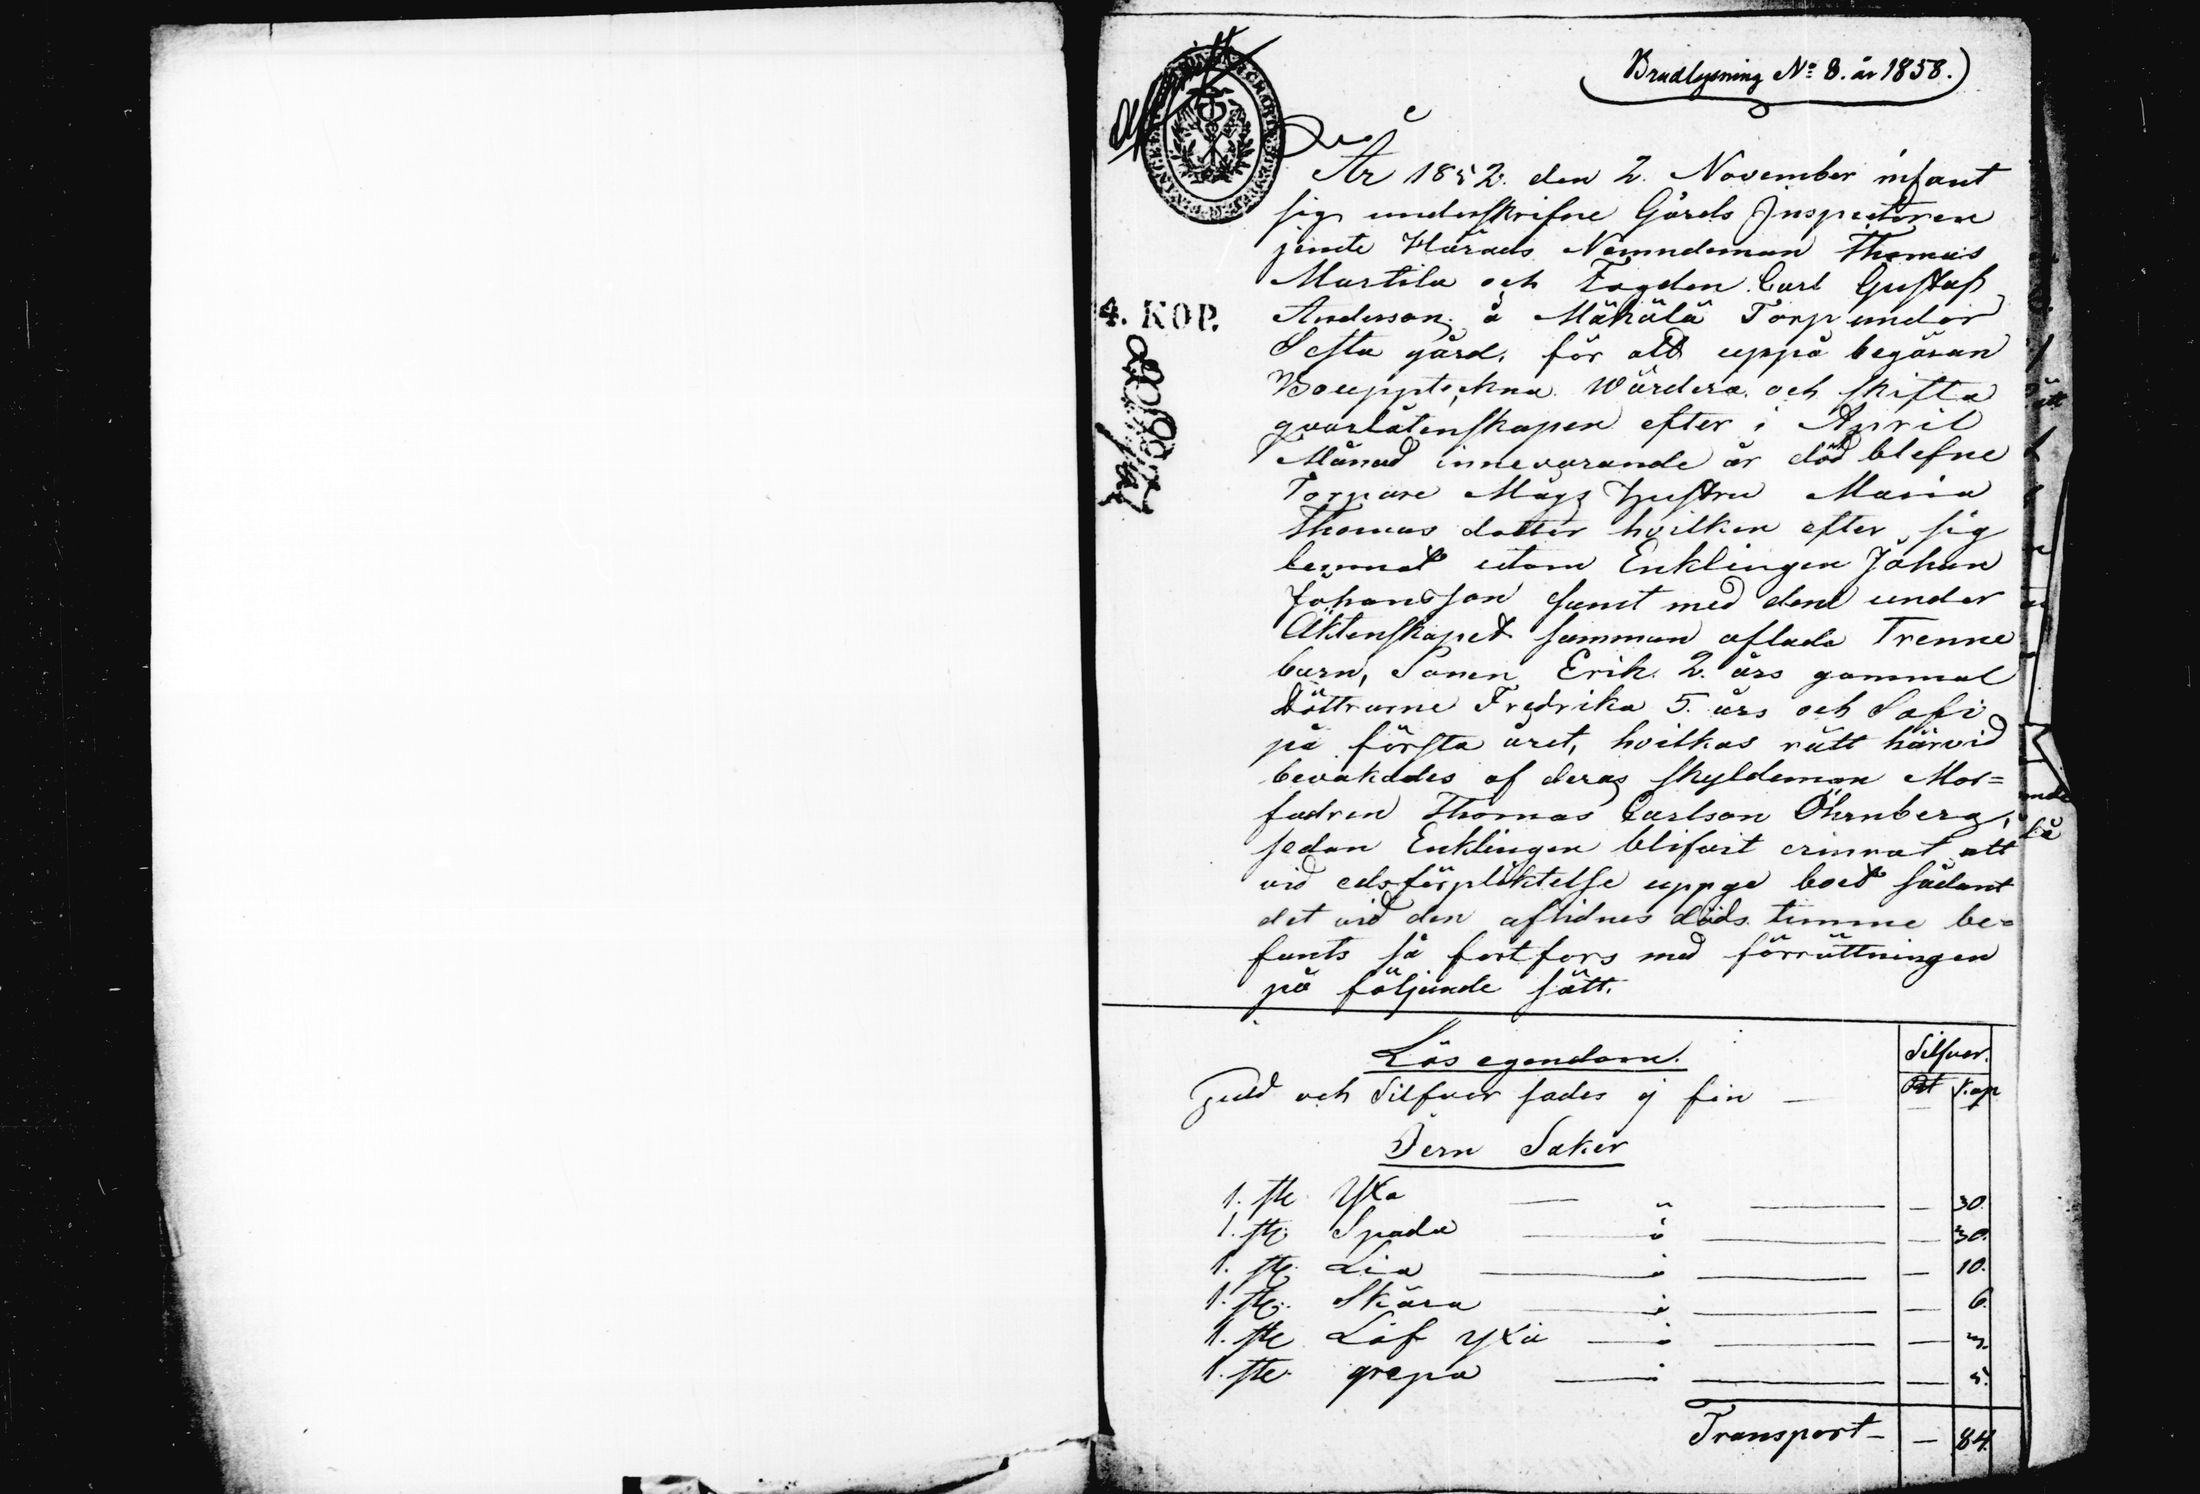 Brudlysning No 8. år 1858.
År 1852. den 2. November infant
sig underskrifne Gårds Inspectoren
jemte Härads Nemndeman Thomas
Martila och Fogden Carl Gustaf
Anderson å Mähälä Torp under
Sesta gård, för att uppå begäran
Bouppteckna Wärdera och skifta
qvarlåtenskapen efter i April
Månad innevarande år död blefne
Torpare Mågs Hustru Maria
Thomas dotter hvilken efter sig
lemnat utom Enklingen Johan
Johansson samt med den under
Äktenskapet samman aflade Trenne
barn, Sonen Erik 2. års gammal
Döttrarne Fredrika 5. års och Sofi
på första året, hvilkas rätt härvid
bevakades af deras skyldeman Mor=
fadren Thomas Carlson Öhrnberg,
sedan Enklingen blifvit erinrat att
vid edsförpliktelse uppge boet sådant
det vid den aflidnes döds timme be=
fants så fortfors med förrättningen
på följande sätt.
4. KOP.
Lös egendom. Silfver.
Guld och Silfver sades ej fin — Rbl Kop
Jern Saker
1. st. Yxa — — 30.
1. st. Spada — — 30.
1. st. Lia — — 10.
1. st. Skära — — 6.
1. st. Löf yxa — — 3.
1. st. grepa — — 5.
Transport — — 84.